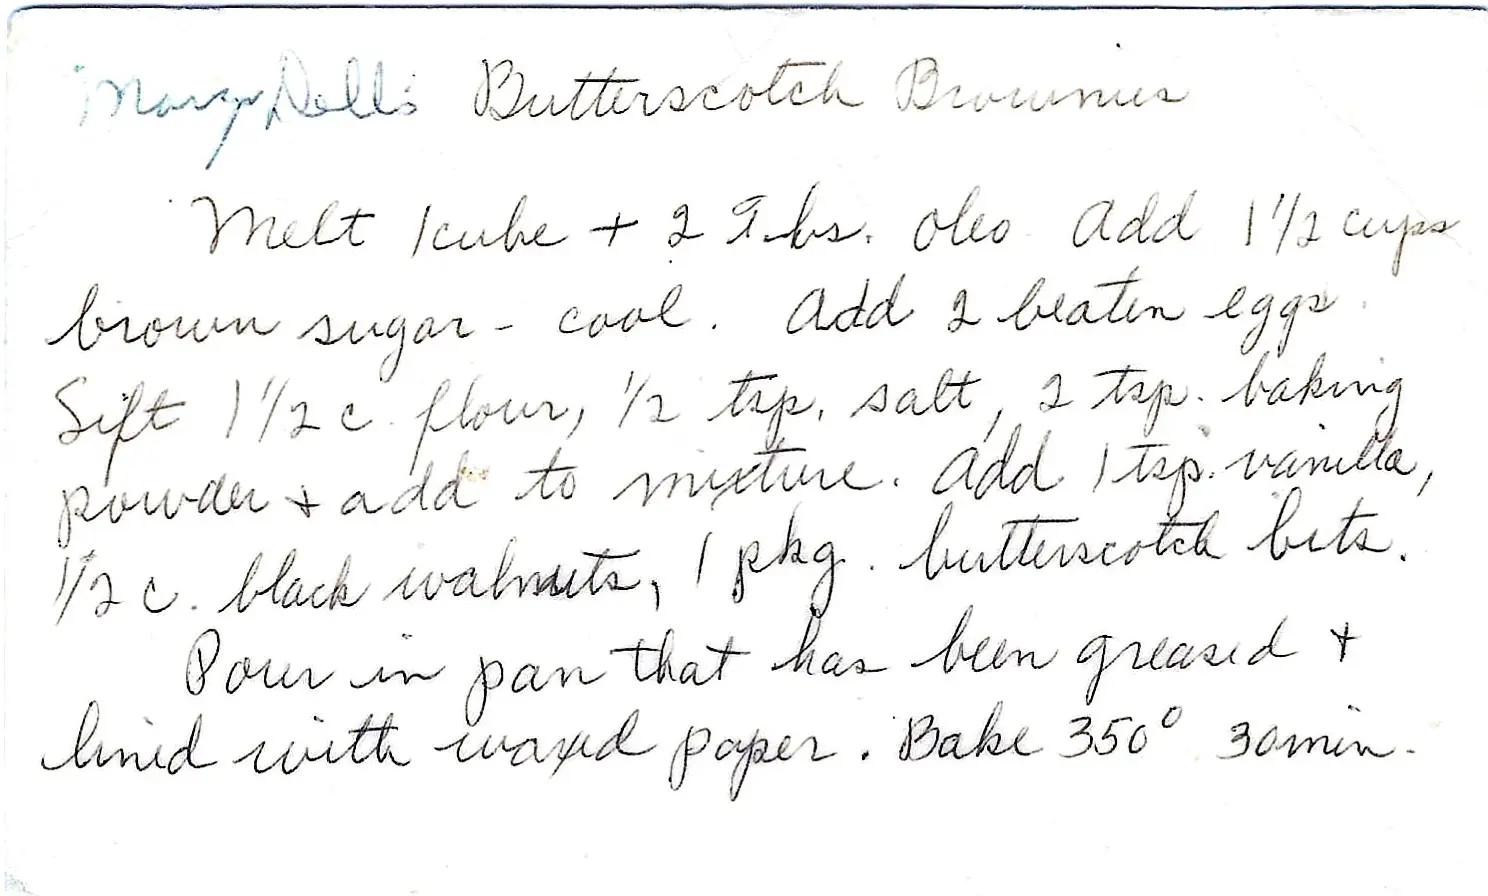 Mary Dell's Butterscotch Brownies
Melt 1 cube + 2 Tbs. oleo. Add 1 1/2 cups
brown sugar - cool. Add 2 beaten eggs.
Sift 1 1/2 c. flour, 1/2 tsp. salt, 2 tsp. baking
powder + add to mixture. Add 1 tsp. vanilla,
1/2 c. black walnuts, 1 pkg. butterscotch bits.
Pour in pan that has been greased +
lined with waxed paper. Bake 350° 30 min.